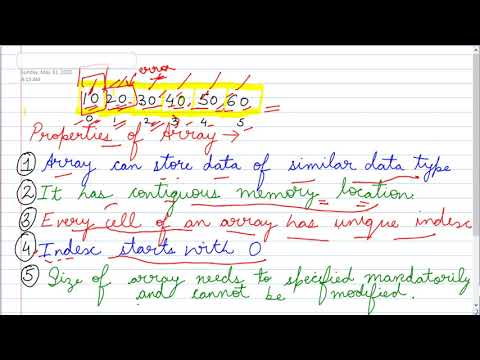 Sunday, May 31, 2020
error
10 20 30 40 50 60
0 1 2 3 4 5
Properties of Array →
① Array can store data of similar data type
② It has contiguous memory location.
③ Every cell of an array has unique index
④ Index starts with 0
⑤ Size of array needs to specified mandatorily
and cannot be modified.